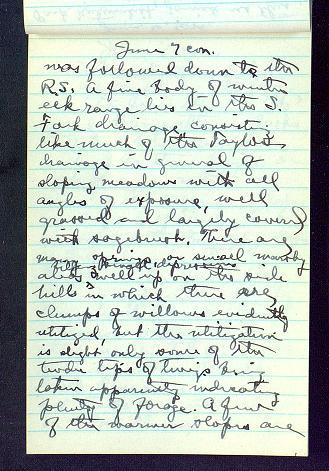 June 7 con.
was followed down to the
R.S. A fine body of winter
elk range lies in the S.
Fork drainage, consisting
like much of the Taylor
drainage in general of
sloping meadows with all
angles of exposure, well
grassed and largely covered
with sagebrush. There are
many springs or small marshy
areas well up on the side
hills in which there are
clumps of willows evidently
utilized, but the utilization
is slight only some of the
tender tips of twigs being
taken apparently indicating
plenty of forage. A few
of the warmer slopes are